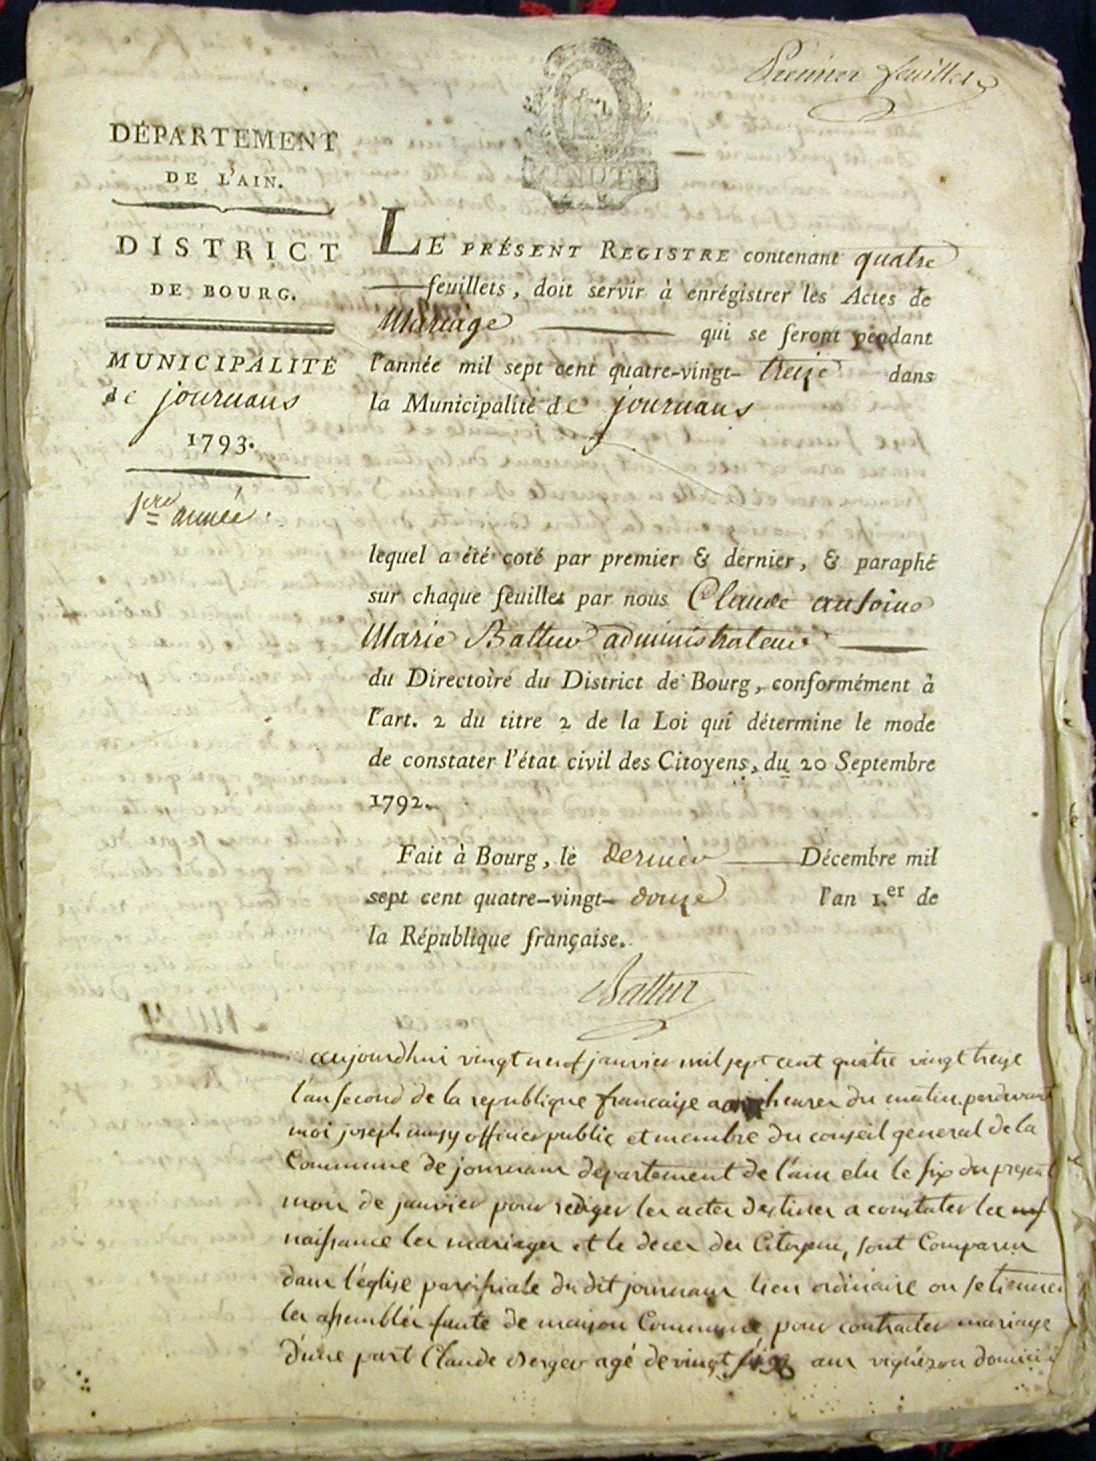 Premier feuillet
MINUTE
DÉPARTEMENT
DE L'AIN.
DISTRICT
DE BOURG.
MUNICIPALITÉ
de journans
1793.
1ere année.
LE PRÉSENT REGISTRE contenant quatre
feuillets, doit servir à enrégistrer les Actes de
Mariage qui se feront pendant
l'année mil sept cent quatre-vingt- treize dans
la Municipalité de journans
lequel a été coté par premier & dernier, & paraphé
sur chaque feuillet par nous Claude antoine
Marie Battur administrateur
du Directoire du District de Bourg, conformément à
l'art. 2 du titre 2 de la Loi qui détermine le mode
de constater l'état civil des Citoyens, du 20 Septembre
1792.
Fait à Bourg, le dernier Décembre mil
sept cent quatre-vingt- douze l'an 1.er de
la République française.
Battur
aujourdhui vingt neuf janvier mil sept cent quatre vingt treize
l'an second de la republique francaise a heures du matin pardevant
moi joseph officier public et membre du conseil general de la
Commune de journans departement de l'ain elu le six du present
mois de janvier pour rediger les actes destines a constater les
naissance les mariages et le deces des Citoyens, sont Comparus
dans l'église paroissiale du dit journans lieu ordinaire ou se tiennent
les assemblés faute de maison Commune pour contracter mariage
d'une part Claude Berger agé de vingt ans vigneron domicili